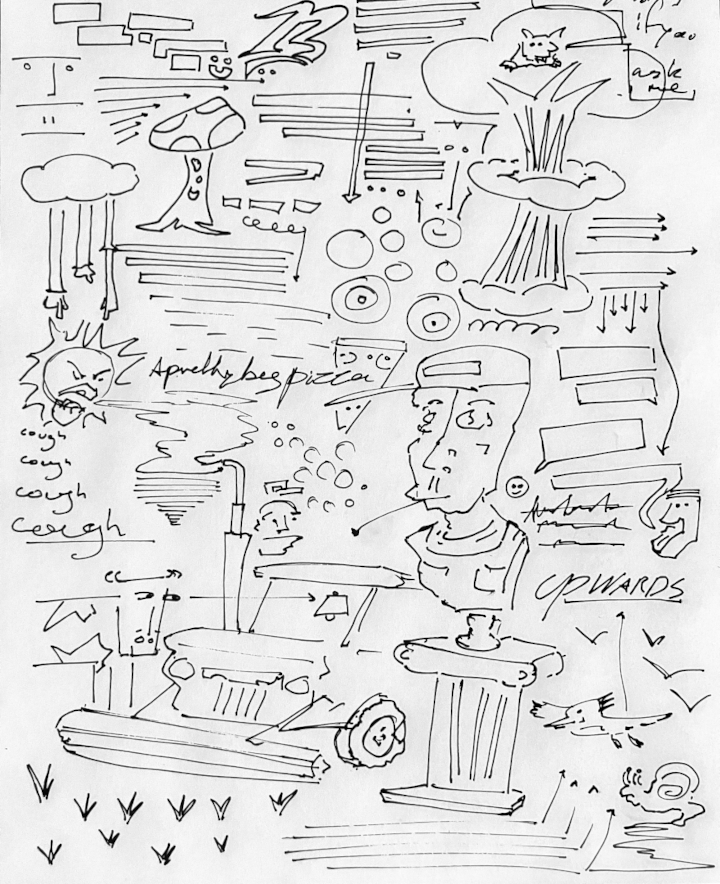 ask
me
A pretty big pizza
cough
cough
cough
cough
UPWARDS